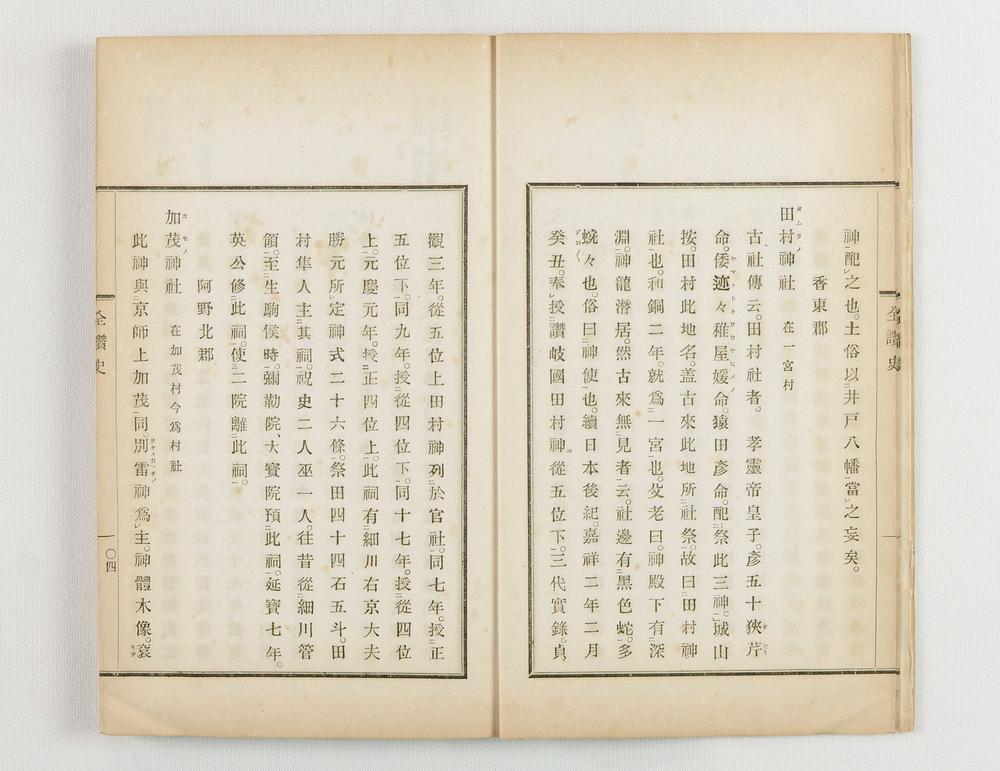 神配之也。土俗以井戸八幡當之妄矣。
香東郡
田村神社 在一宮村
古社傳云。田村社者。 孝靈帝皇子。彥五十狹芹
命。倭迹々稚屋媛命。猿田彥命。配祭此三神。城山
按。田村此地名。蓋古來此地所社祭。故曰田村神
社也。和銅二年。就爲一宮也。父老曰。神殿下有深
淵。神龍潜居。然古來無見者云。社邊有黑色蛇。多
蜿々也。俗曰神使也。續日本後紀。嘉祥二年二月
癸丑。奉授讚岐國田村神從五位下。三代實錄。貞
觀三年。從五位上田村神列於官社。同七年。授正
五位下。同九年。授從四位下。同十七年。授從四位
上。元慶元年。授正四位上。此祠有細川右京大夫
勝元所定神式二十六條。祭田四十四石五斗。田
村隼人主其祠。祝史二人巫一人。往昔從細川管
領。至生駒侯時。彌勒院、大寳院預此祠。延寳七年。
英公修此祠。使二院離此祠。
阿野北郡
加茂神社 在加茂村今爲村社
此神與京師上加茂同。別雷神爲主。神體木像。衮
全讚史
全讚史
〇四